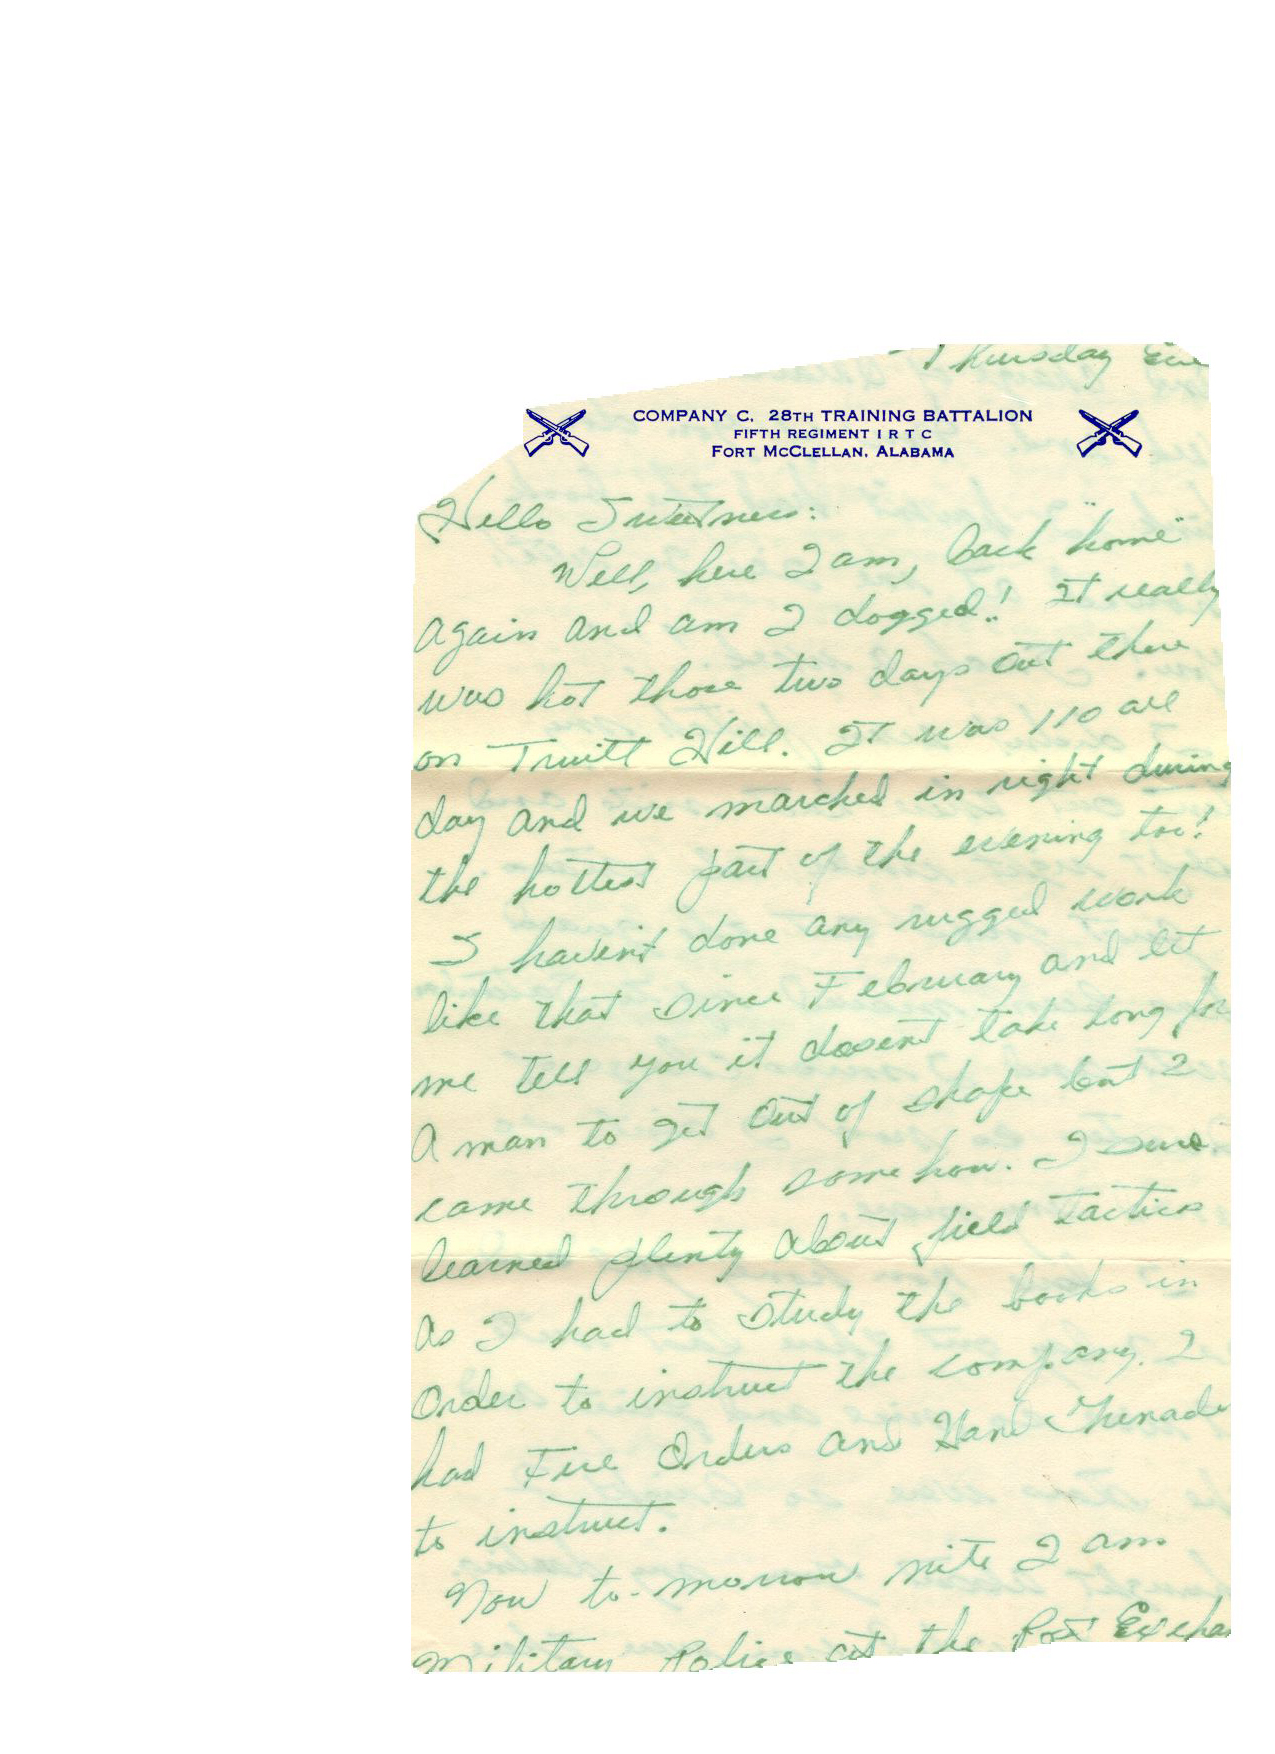 Thursday Eve
COMPANY C. 28TH TRAINING BATTALION
FIFTH REGIMENT I R T C
FORT MCCLELLAN, ALABAMA
Hello Sweetness:
Well, here I am, back "home"
again and am I dogged!! It really
was hot those two days out there
on Truitt Hill. It was 110 all
day and we marched in right during
the hottest part of the evening too!
I haven't done any rugged work
like that since February and let
me tell you it dosent take long for
a man to get out of shape but I
came through somehow. I sure
learned plenty about field tactics
as I had to study the books in
order to instruct the company. I
had Fire Orders and Hand Grenade
to instruct.
Now to-morrow nite I am
Military Police at the Post Excha